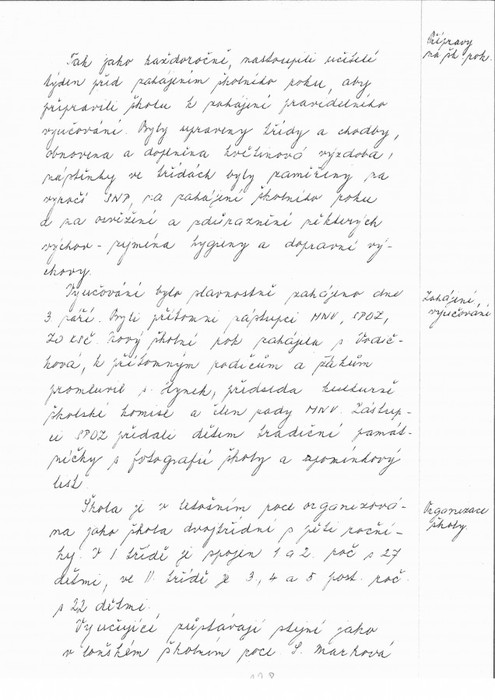 Přípravy
na šk. rok.
Tak jako každoročně, nastoupili učitelé
týden před zahájením školního roku, aby
připravili školu k zahájení pravidelného
vyučování. Byly upraveny třídy a chodby,
obnovena a doplněna květinová výzdoba,
nástěnky ve třídách byly zaměřeny na
výročí SNP, na zahájení školního roku
a na osvěžení a zdůraznění některých
výchov - zejména hygieny a dopravní vý-
chovy.
Zahájení
vyučování
Vyučování bylo slavnostně zahájeno dne
3. září. Byli přítomni zástupci MNV, SPOZ,
ZO KSČ. Nový školní rok zahájila s.
ková, k přítomným rodičům a žákům
promluvil s. Hynek, předseda kulturně
školské komise a člen rady MNV. Zástup-
ci SPOZ předali dětem tradiční památ-
níčky s fotografií školy a vzpomínkový
list.
Organizace
školy
Škola je v letošním roce organizová-
na jako škola dvojtřídní s pěti roční-
ky. V I třídě je spojen 1 a 2. roč s 27
dětmi, ve II. třídě je 3, 4 a 5 post. roč.
s 22 dětmi.
Vyučující zůstávají stejní jako
v loňském školním roce. S. Marková